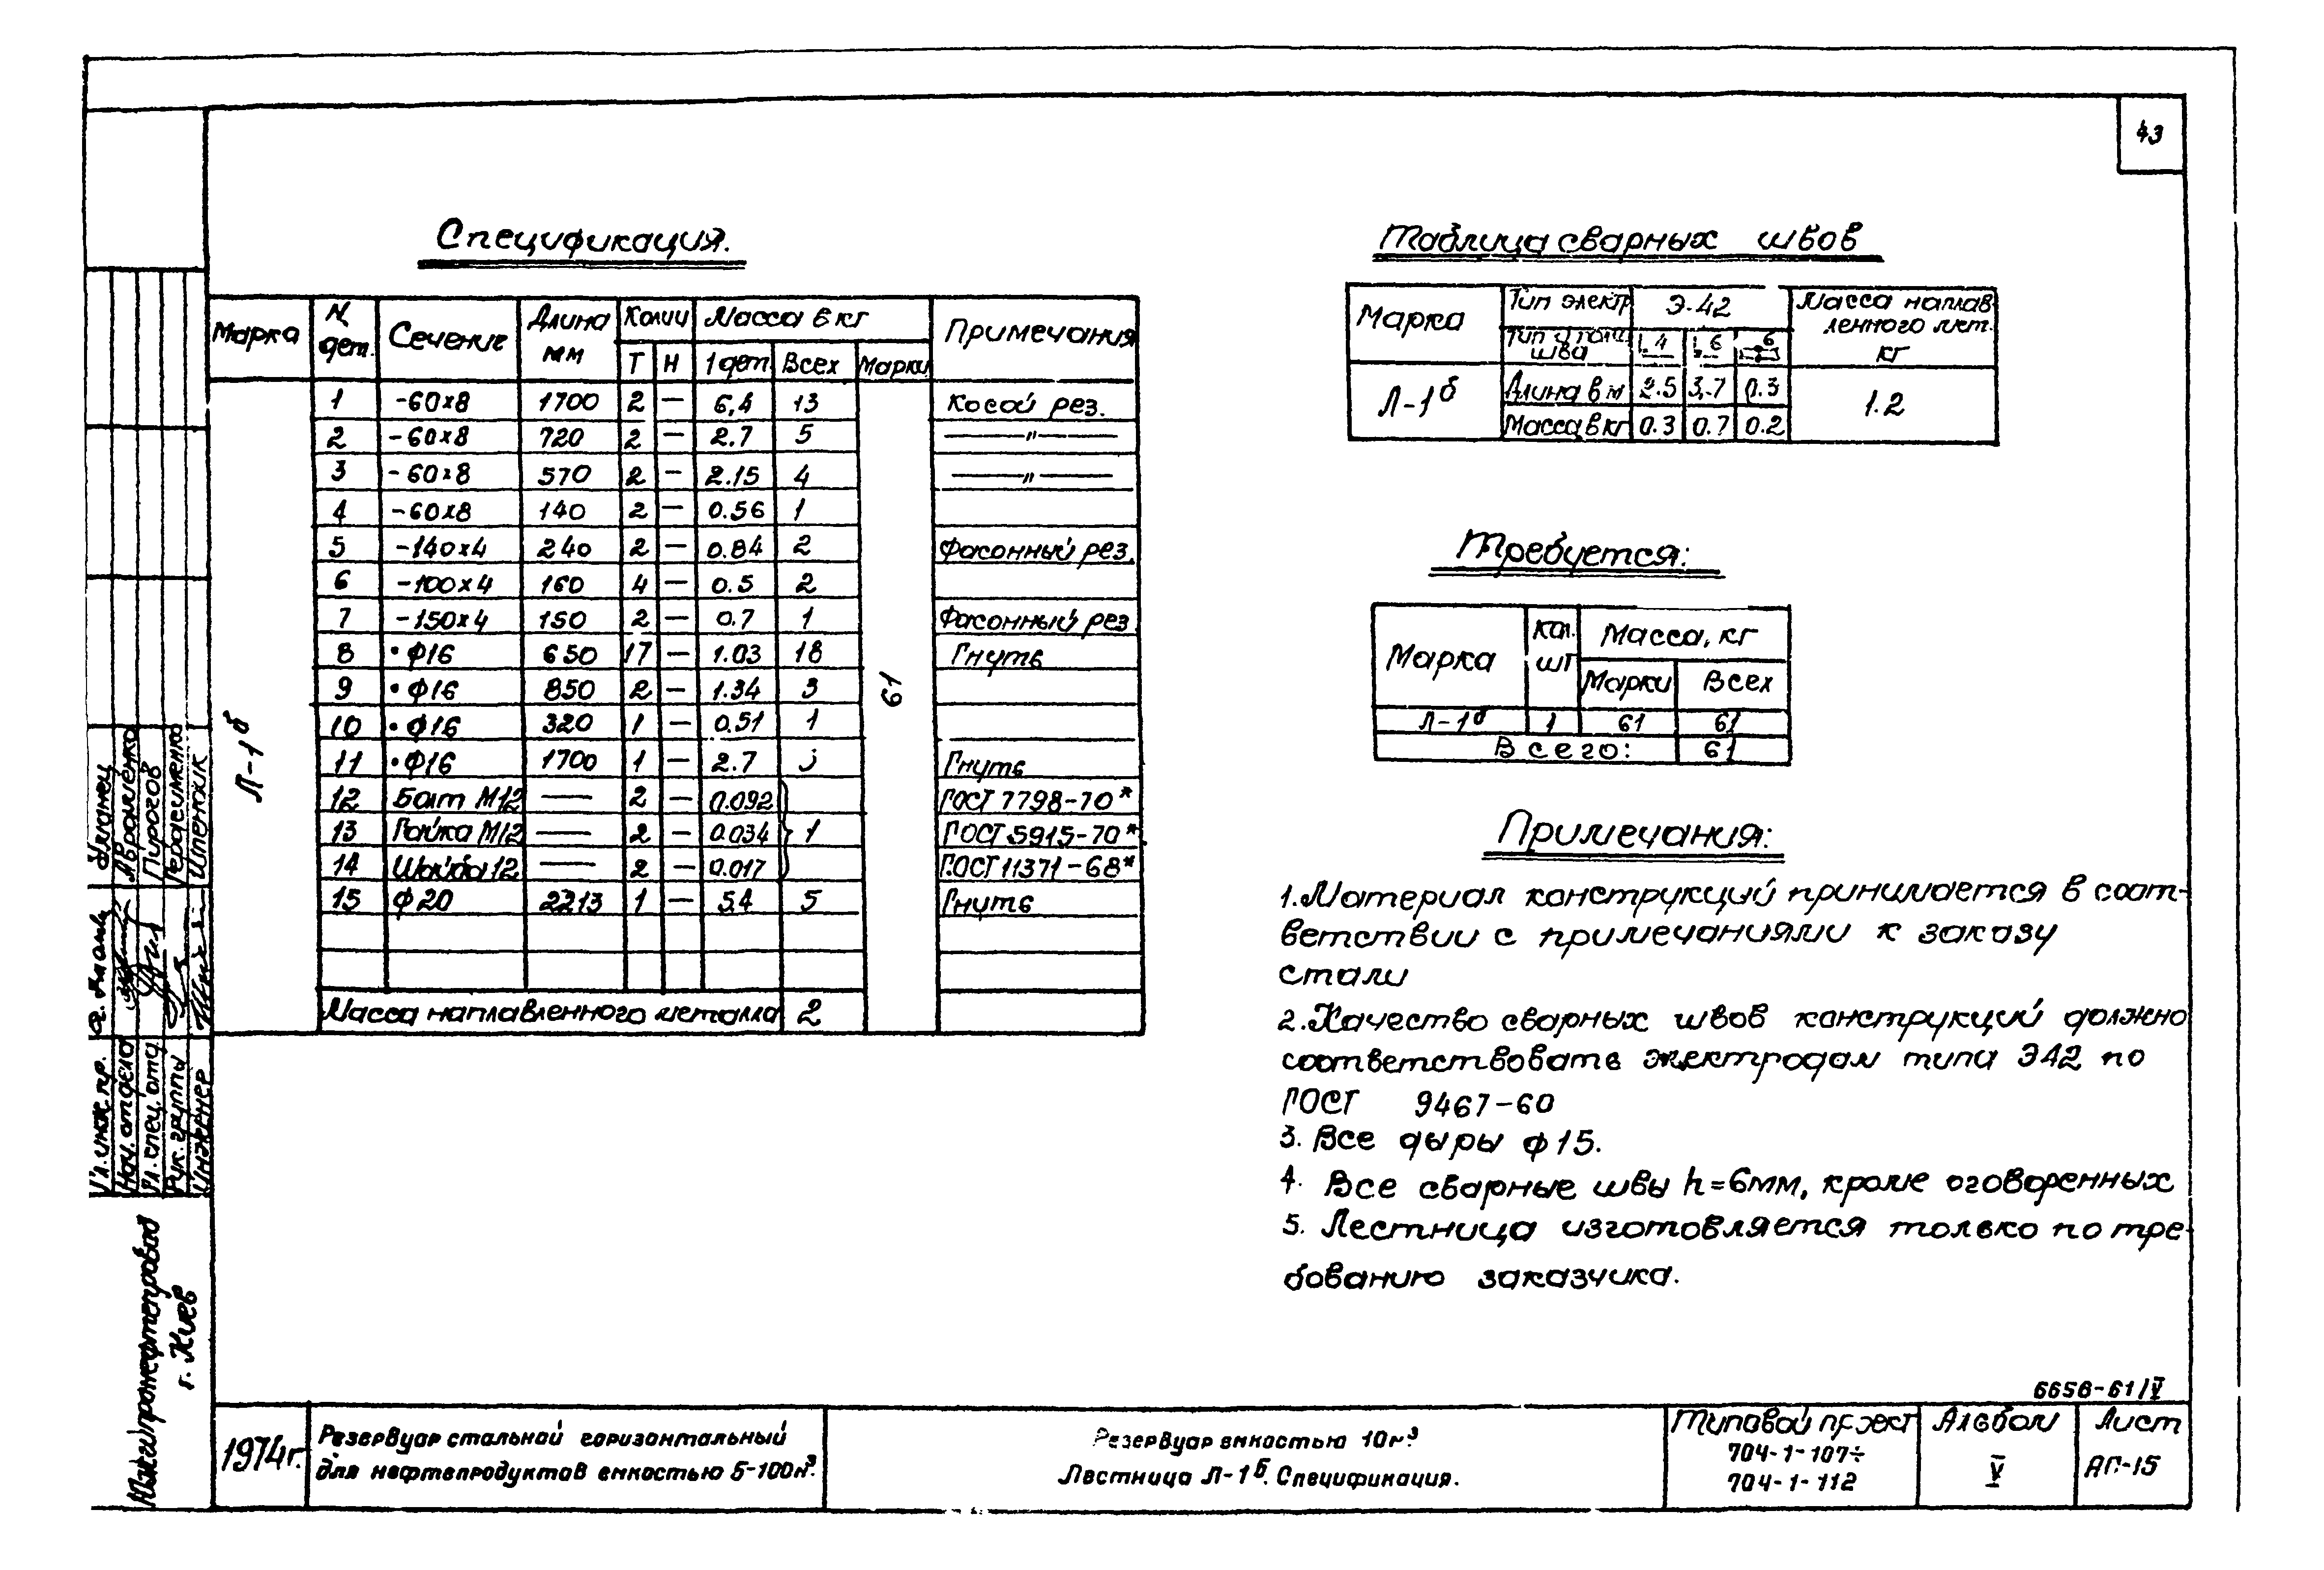 43
Спецификация.
Марка N дет. Сечение Длина мм Колич Масса в кг Примечания
Т Н 1 дет. Всех Марки
Л-1б 61
1 -60х8 1700 2 — 6,4 13 Косой рез.
2 -60х8 720 2 — 2.7 5 —"—
3 -60х8 570 2 — 2.15 4 —"—
4 -60х8 140 2 — 0.56 1
5 -140х4 240 2 — 0.84 2 Фасонный рез.
6 -100х4 160 4 — 0.5 2
7 -150х4 150 2 — 0.7 1 Фасонный рез
8 •ф16 650 17 — 1.03 18 Гнуть
9 •ф16 850 2 — 1.34 3
10 •ф16 320 1 — 0.51 1
11 •ф16 1700 1 — 2.7 Гнуть
12 Болт М12 — 2 — 0.092 ГОСТ 7798-70*
13 Гайка М12 — 2 — 0.034 1 ГОСТ 5915-70*
14 Шайба 12 — 2 — 0.017 ГОСТ 11371-68*
15 ф20 2213 1 — 5.4 5 Гнуть
Масса наплавленного металла 2
Таблица сварных швов
Марка Тип электр Э-42 Масса наплав
ленного мет.
кг
Тип и толщ.
шва 4 6 6
Л-1б Длина в м 2.5 3.7 0.3 1.2
Масса в кг 0.3 0.7 0.2
Требуется:
Марка Кол. шт Масса, кг
Марки Всех
Л-1б 1 61 61
Всего: 61
Примечания:
1. Материал конструкций принимается в соот-
ветствии с примечаниями к заказу
стали
2. Качество сварных швов конструкций должно
соответствовать электродам типа Э42 по
ГОСТ 9467-60
3. Все дыры ф15.
4. Все сварные швы h=6мм, кроме оговоренных
5. Лестница изготовляется только по тре-
бованию заказчика.
Гл. инж. пр.
Нач. отдела Авраменко
Гл. спец. отд. Пирогов
Рук. группы Герасименко
Инженер Шпенчик
Южгипронефтепровод
г. Киев
6656-61/V
1974г.
Резервуар стальной горизонтальный
для нефтепродуктов емкостью 5-100м³.
Резервуар емкостью 10м³
Лестница Л-1б. Спецификация.
Типовой проект
704-1-107÷
704-1-112
Альбом
V
Лист
-15